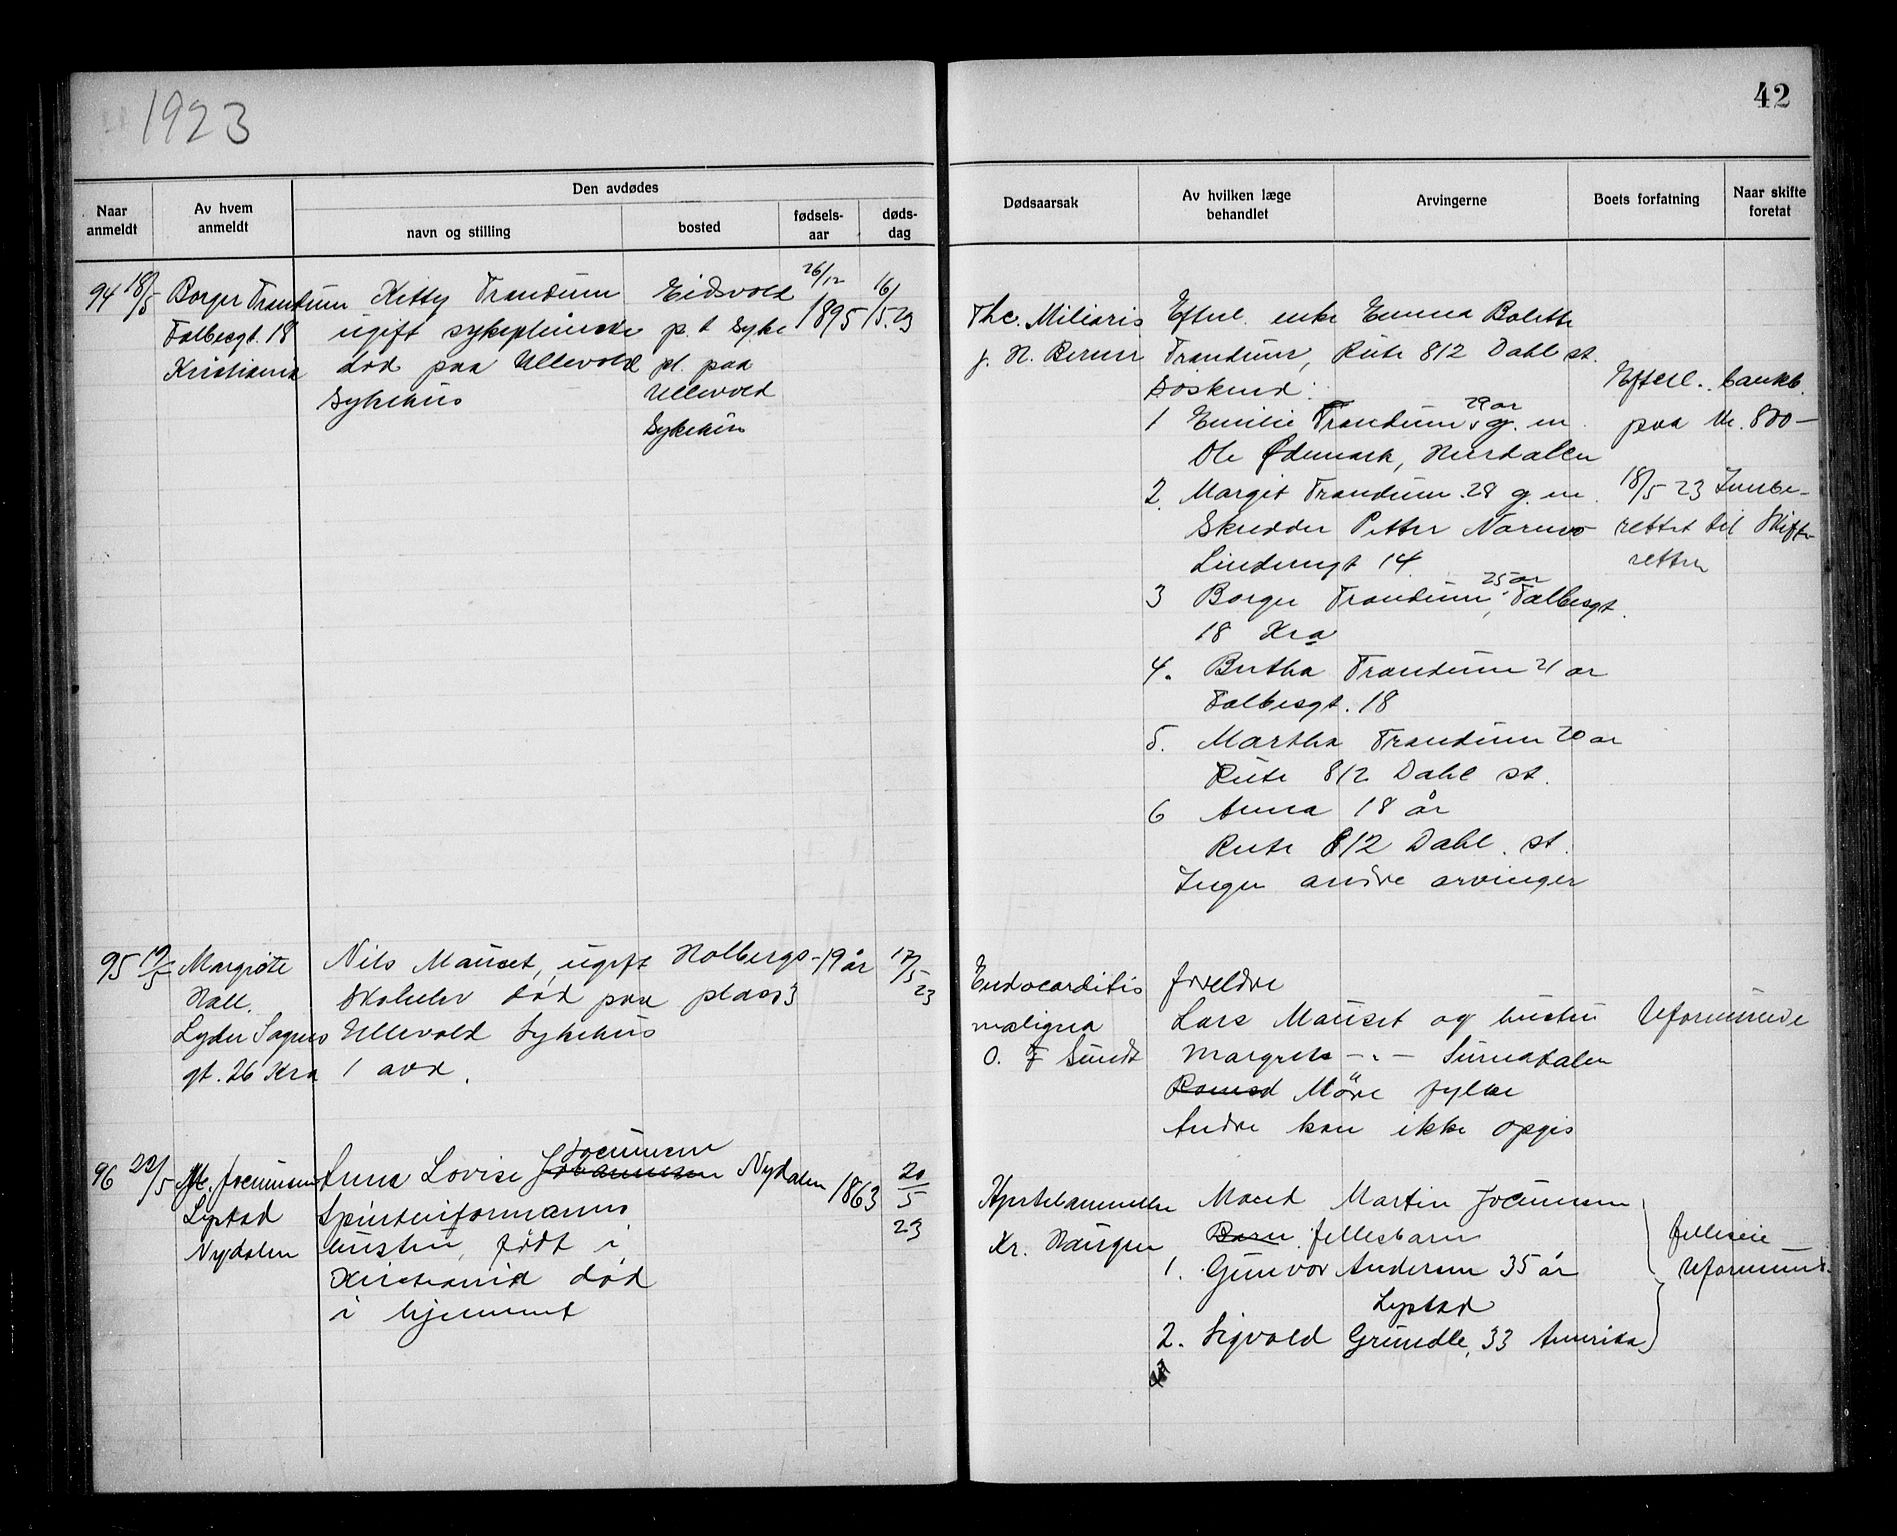 1923
42
Naar anmeldt
Av hvem anmeldt
Den avdødes
navn og stilling
bosted
fødsels-aar
døds-dag
Dødsaarsak
Av hvilken læge behandlet
Arvingerne
Boets forfatning
Naar skifte foretat
94 18/5
Borger Trandum
Falbesgt. 18
Kristiania
Kitty Trandum
ugift sykepleierske
død paa Ullevold
Sykehus
Eidsvold
p. t. Syke
pl. paa
Ullevold
Sykehus
26/12
1895
16/5.23
Tbc. Miliaris
J. N. Berner
Efterl. enke Emma Bolette
Trandum, Rute 812 Dahl st.
Søskend:
1 Emilie Trandum 29 ar g. m.
Ole Ødemark, Hurdalen
2. Margit Trandum 28 g. m.
Skredder Petter
Linderngt 14
3 Borger Trandum, 25 ar Falbesgt.
18 Kra
4. Bertha Trandum 21 ar
Falbesgt. 18
5. Martha Trandum 20 ar
Rute 812 Dahl st.
6 Anna 18 år
Rute 812 Dahl. st.
Ingen andre arvinger
Efterl. bankb.
paa kr. 800-
18/5 23 Innbe-
rettet til Skifte-
retten
95 19/5
Margrete
Hall.
Lyder Sagens
gt. 26 Kra
Nils Mauset, ugift
Skoleelev død paa
Ullevold Sykehus
1 avd.
Holbergs-
plass 3
19 år
17/5
23
Endocarditis
maligna
O. F Sundt
forældre
Lars Mauset og hustru
Margrete -"- Surnadalen
Romsd Möre fylke
Andre kan ikke opgis
Uformuende
96 22/5
M. Jocumsen
Lystad
Nydalen
Jocumsen
Anna Lovise Johannesen
Spinderiformanns
hustru, født i
Kristiania død
i hjemmet
Nydalen
1863
20
5
23
Hjertelammelse
Kr. Haugen
Mand Martin Jocumsen
Barn. fellesbarn
1. Gunvor Andersen 35 år
Lystad
2. Sigvald Grundle, 33 Amerika
felleseie
Uformuend.